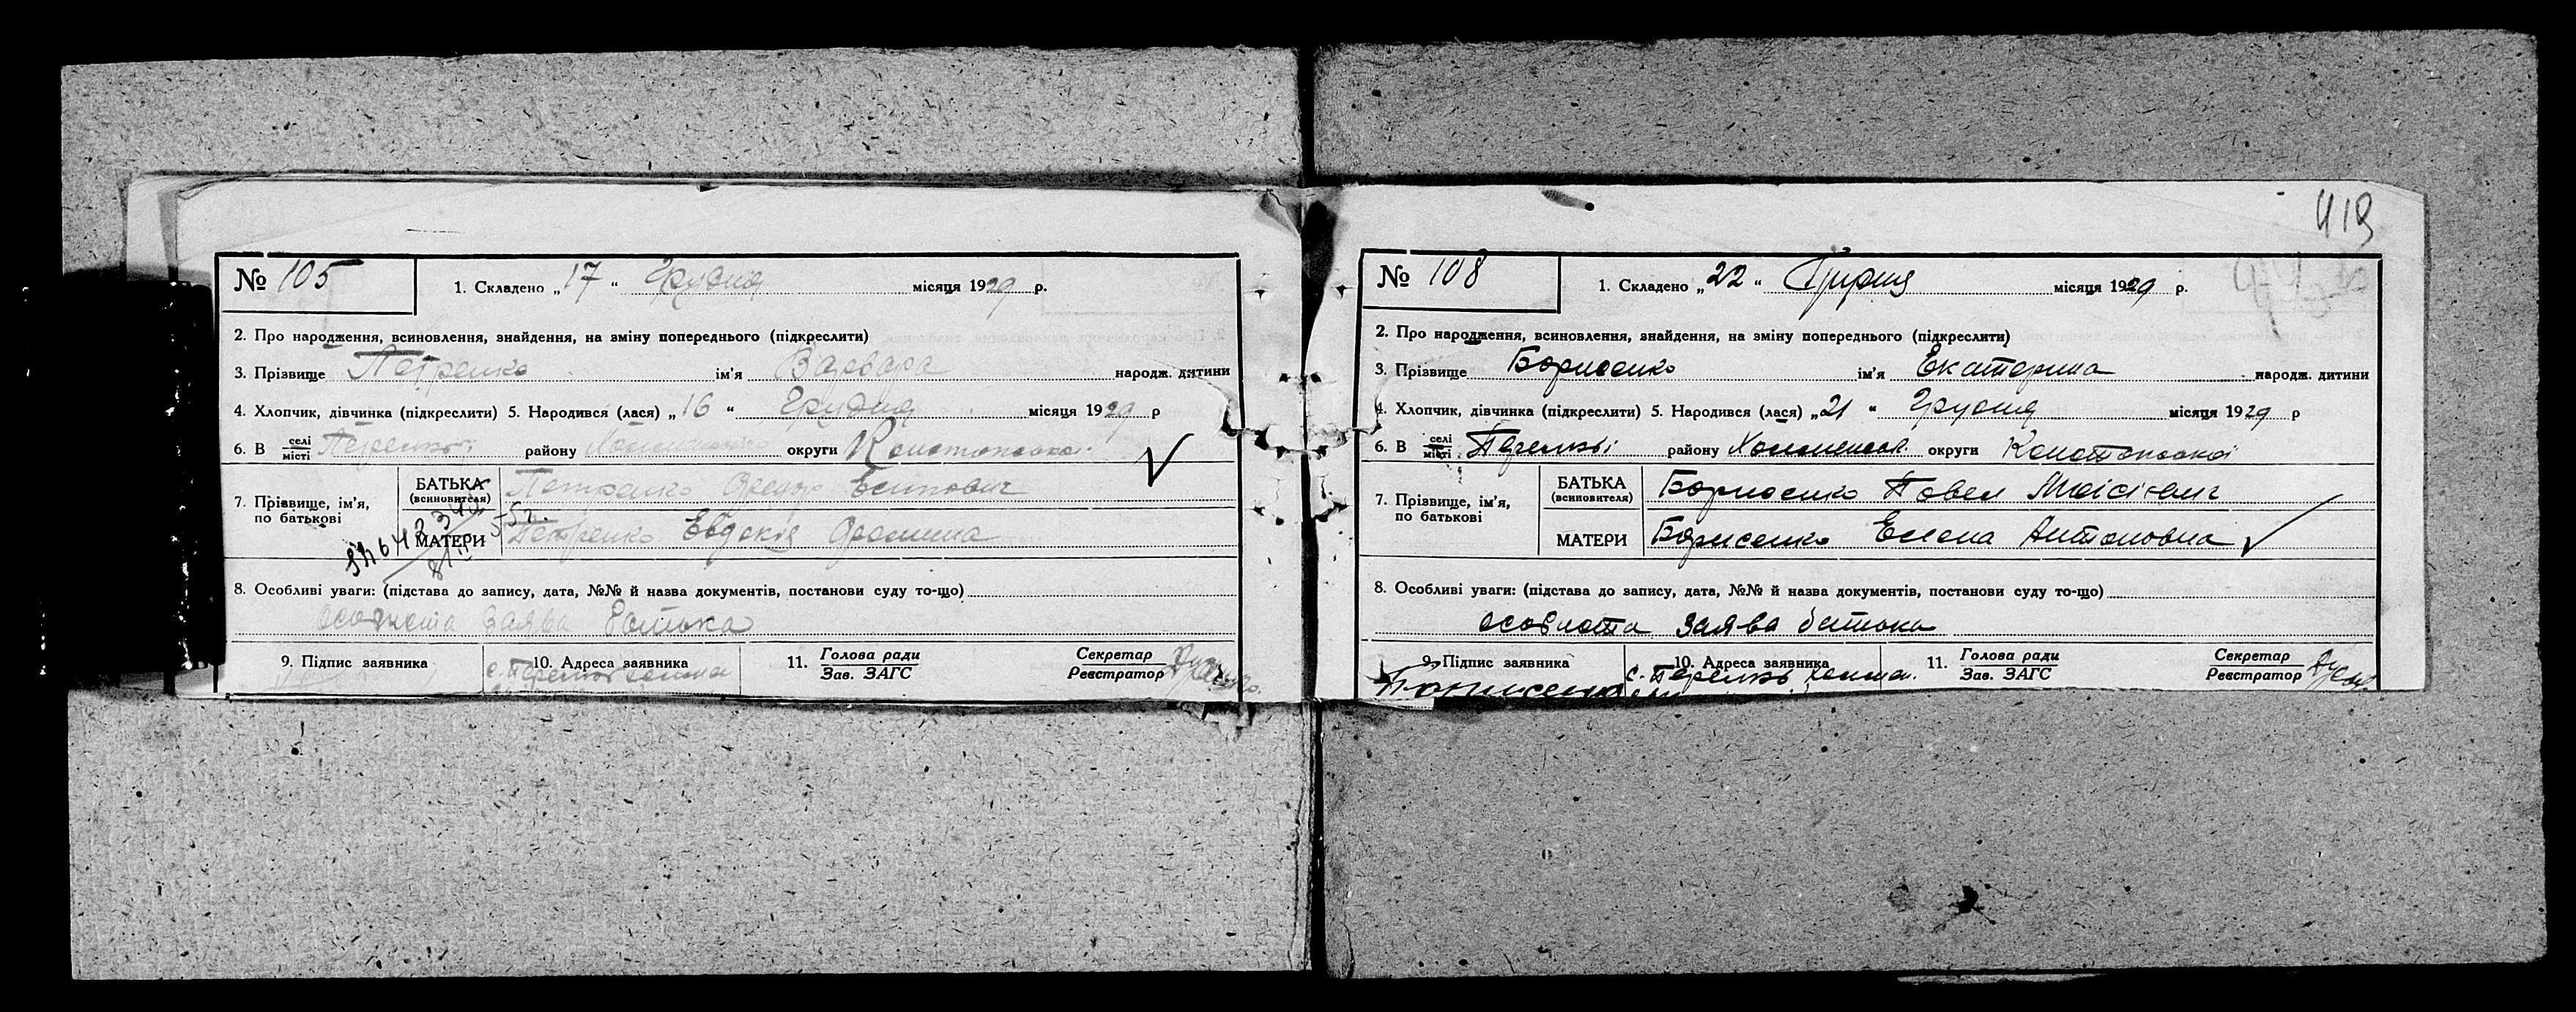 № 105
1. Складено „17“ Грудня місяця 1929 р.
2. Про народження, всиновлення, знайдення, на зміну попереднього (підкреслити)
3. Прізвище Петренко ім'я Варвара народж. дитини
4. Хлопчик, дівчинка (підкреслити) 5. Народився (лася) „16“ Грудня місяця 1929 р
6. В селі місті району округи Конотопська
7. Прізвище, ім'я, по батькові
БАТЬКА (всиновителя) Петренко Федор Есипович
МАТЕРИ Петренко Евдокія
8. Особливі уваги: (підстава до запису, дата, №№ й назва документів, постанови суду то-що)
особиста заява батька
9. Підпис заявника
10. Адреса заявника
11. Голова ради Зав. ЗАГС
Секретар Реєстратор
419
№ 108
1. Складено „22“ Грудня місяця 1929 р.
2. Про народження, всиновлення, знайдення, на зміну попереднього (підкреслити)
3. Прізвище Борисенко ім'я Екатерина народж. дитини
4. Хлопчик, дівчинка (підкреслити) 5. Народився (лася) „21“ Грудня місяця 1929 р
6. В селі місті району округи Конотопської
7. Прізвище, ім'я, по батькові
БАТЬКА (всиновителя) Борисенко Павел Мойсієвич
МАТЕРИ Борисенко Елена Антоновна
8. Особливі уваги: (підстава до запису, дата, №№ й назва документів, постанови суду то-що)
особиста заява батька
9. Підпис заявника
10. Адреса заявника
11. Голова ради Зав. ЗАГС
Секретар Реєстратор